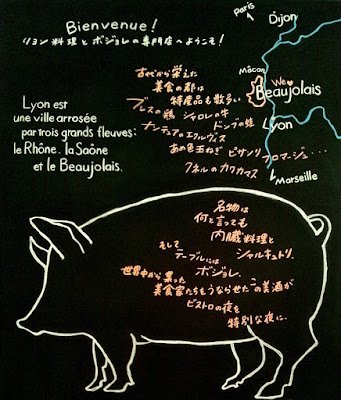 Bienvenue!
リヨン料理とボジョレの専門店へようこそ!
Paris
Dijon
Mâcon
We
Beaujolais
Lyon
Marseille
Lyon est
une ville arrosée
par trois grands fleuves:
le Rhône, la Saône
et le Beaujolais.
栄えた
美食の都は
特産品も数多い
ブレスの鶏 シャロレの牛
ナンテュアのエクルヴィス
ドンブの蛙
あめ色玉ねぎ ピサンリ フロマージュ・・・
クネルのカワカマス
名物は
何と言っても
内臓料理と
シャルキュトリ.
そして
テーブルには
ボジョレ.
世界中から集った
美食家たちをうならせたこの美酒が
ビストロの夜を
特別な夜に.